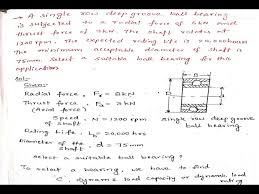 A single row deep groove ball bearing
is subjected to a radial force of 8kN and
thrust force of 3kN. The shaft rotates at
1200rpm. The expected rating life is 20,000hours
The minimum acceptable diameter of shaft is
75mm. Select a suitable ball bearing for this
application.
Sol:-
Given:-
Radial force, Fr = 8kN
Thrust force, Fa = 3kN
(Axial force)
Speed, N = 1200 rpm
Rating life, Lh = 20,000 hrs
Diameter of the shaft, d = 75mm
single row deep groove
ball bearing
select a suitable ball bearing?
To select a bearing, we have to find
C, dynamic load capacity or dynamic load
rating